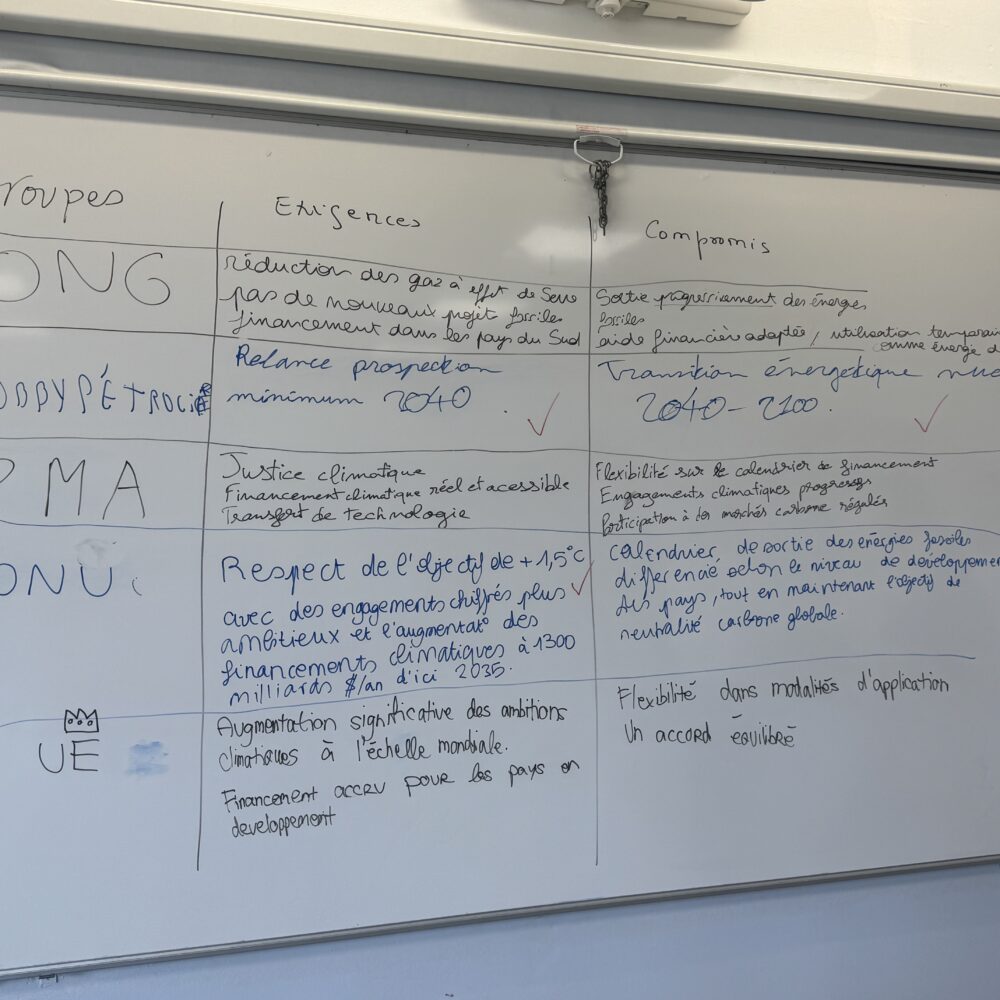 roupes
Exigences
Compromis
ONG
réduction des gaz à effet de Serre
pas de nouveaux projet fossiles
financement dans les pays du Sud
Sortie progressivement des énergies
fossiles
aide financière adaptée, utilisation temporai
comme énergie d
OBBY PÉTROLIER
Relance prospection
minimum 2040.
Transition énergétique
2040-2100.
PMA
Justice climatique
Financement climatique réel et acessible
Transfert de technologie
Flexibilité sur le calendrier de financement
Engagements climatiques progressifs
Participation à des marchés carbone régulés
ONU
Respect de l'objectif de +1,5°C
avec des engagements chiffrés plus
ambitieux et l'augmentat° des
financements climatiques à 1300
milliards $/an d'ici 2035.
Calendrier de sortie des énergies fossiles
differencié selon le niveau de développeme
des pays, tout en maintenant l'objectif de
neutralité carbone globale.
UE
Augmentation significative des ambitions
climatiques à l'échelle mondiale.
Financement accru pour les pays en
developpement
Flexibilité dans modalités d'application
Un accord équilibré